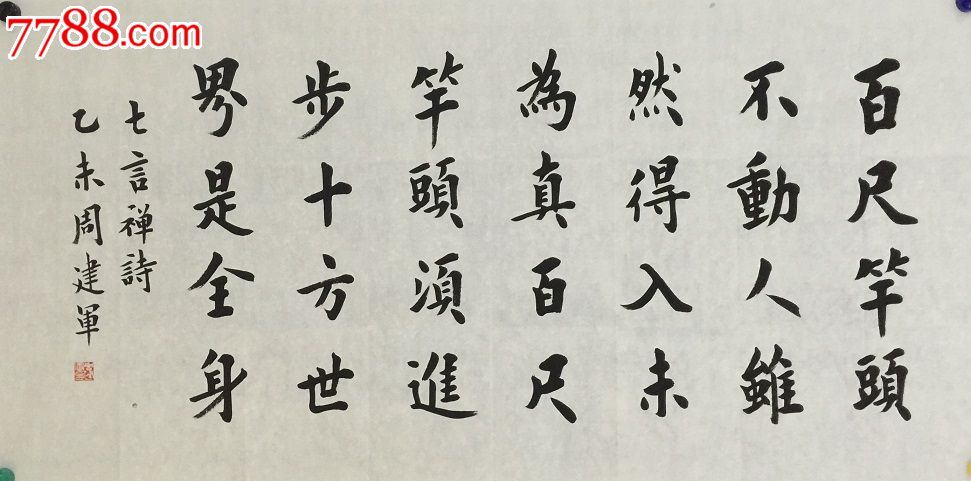 7788.com
百尺竿頭
不動人雖
然得入未
為真百尺
竿頭須進
步十方世
界是全身
七言禅詩
乙未周建軍